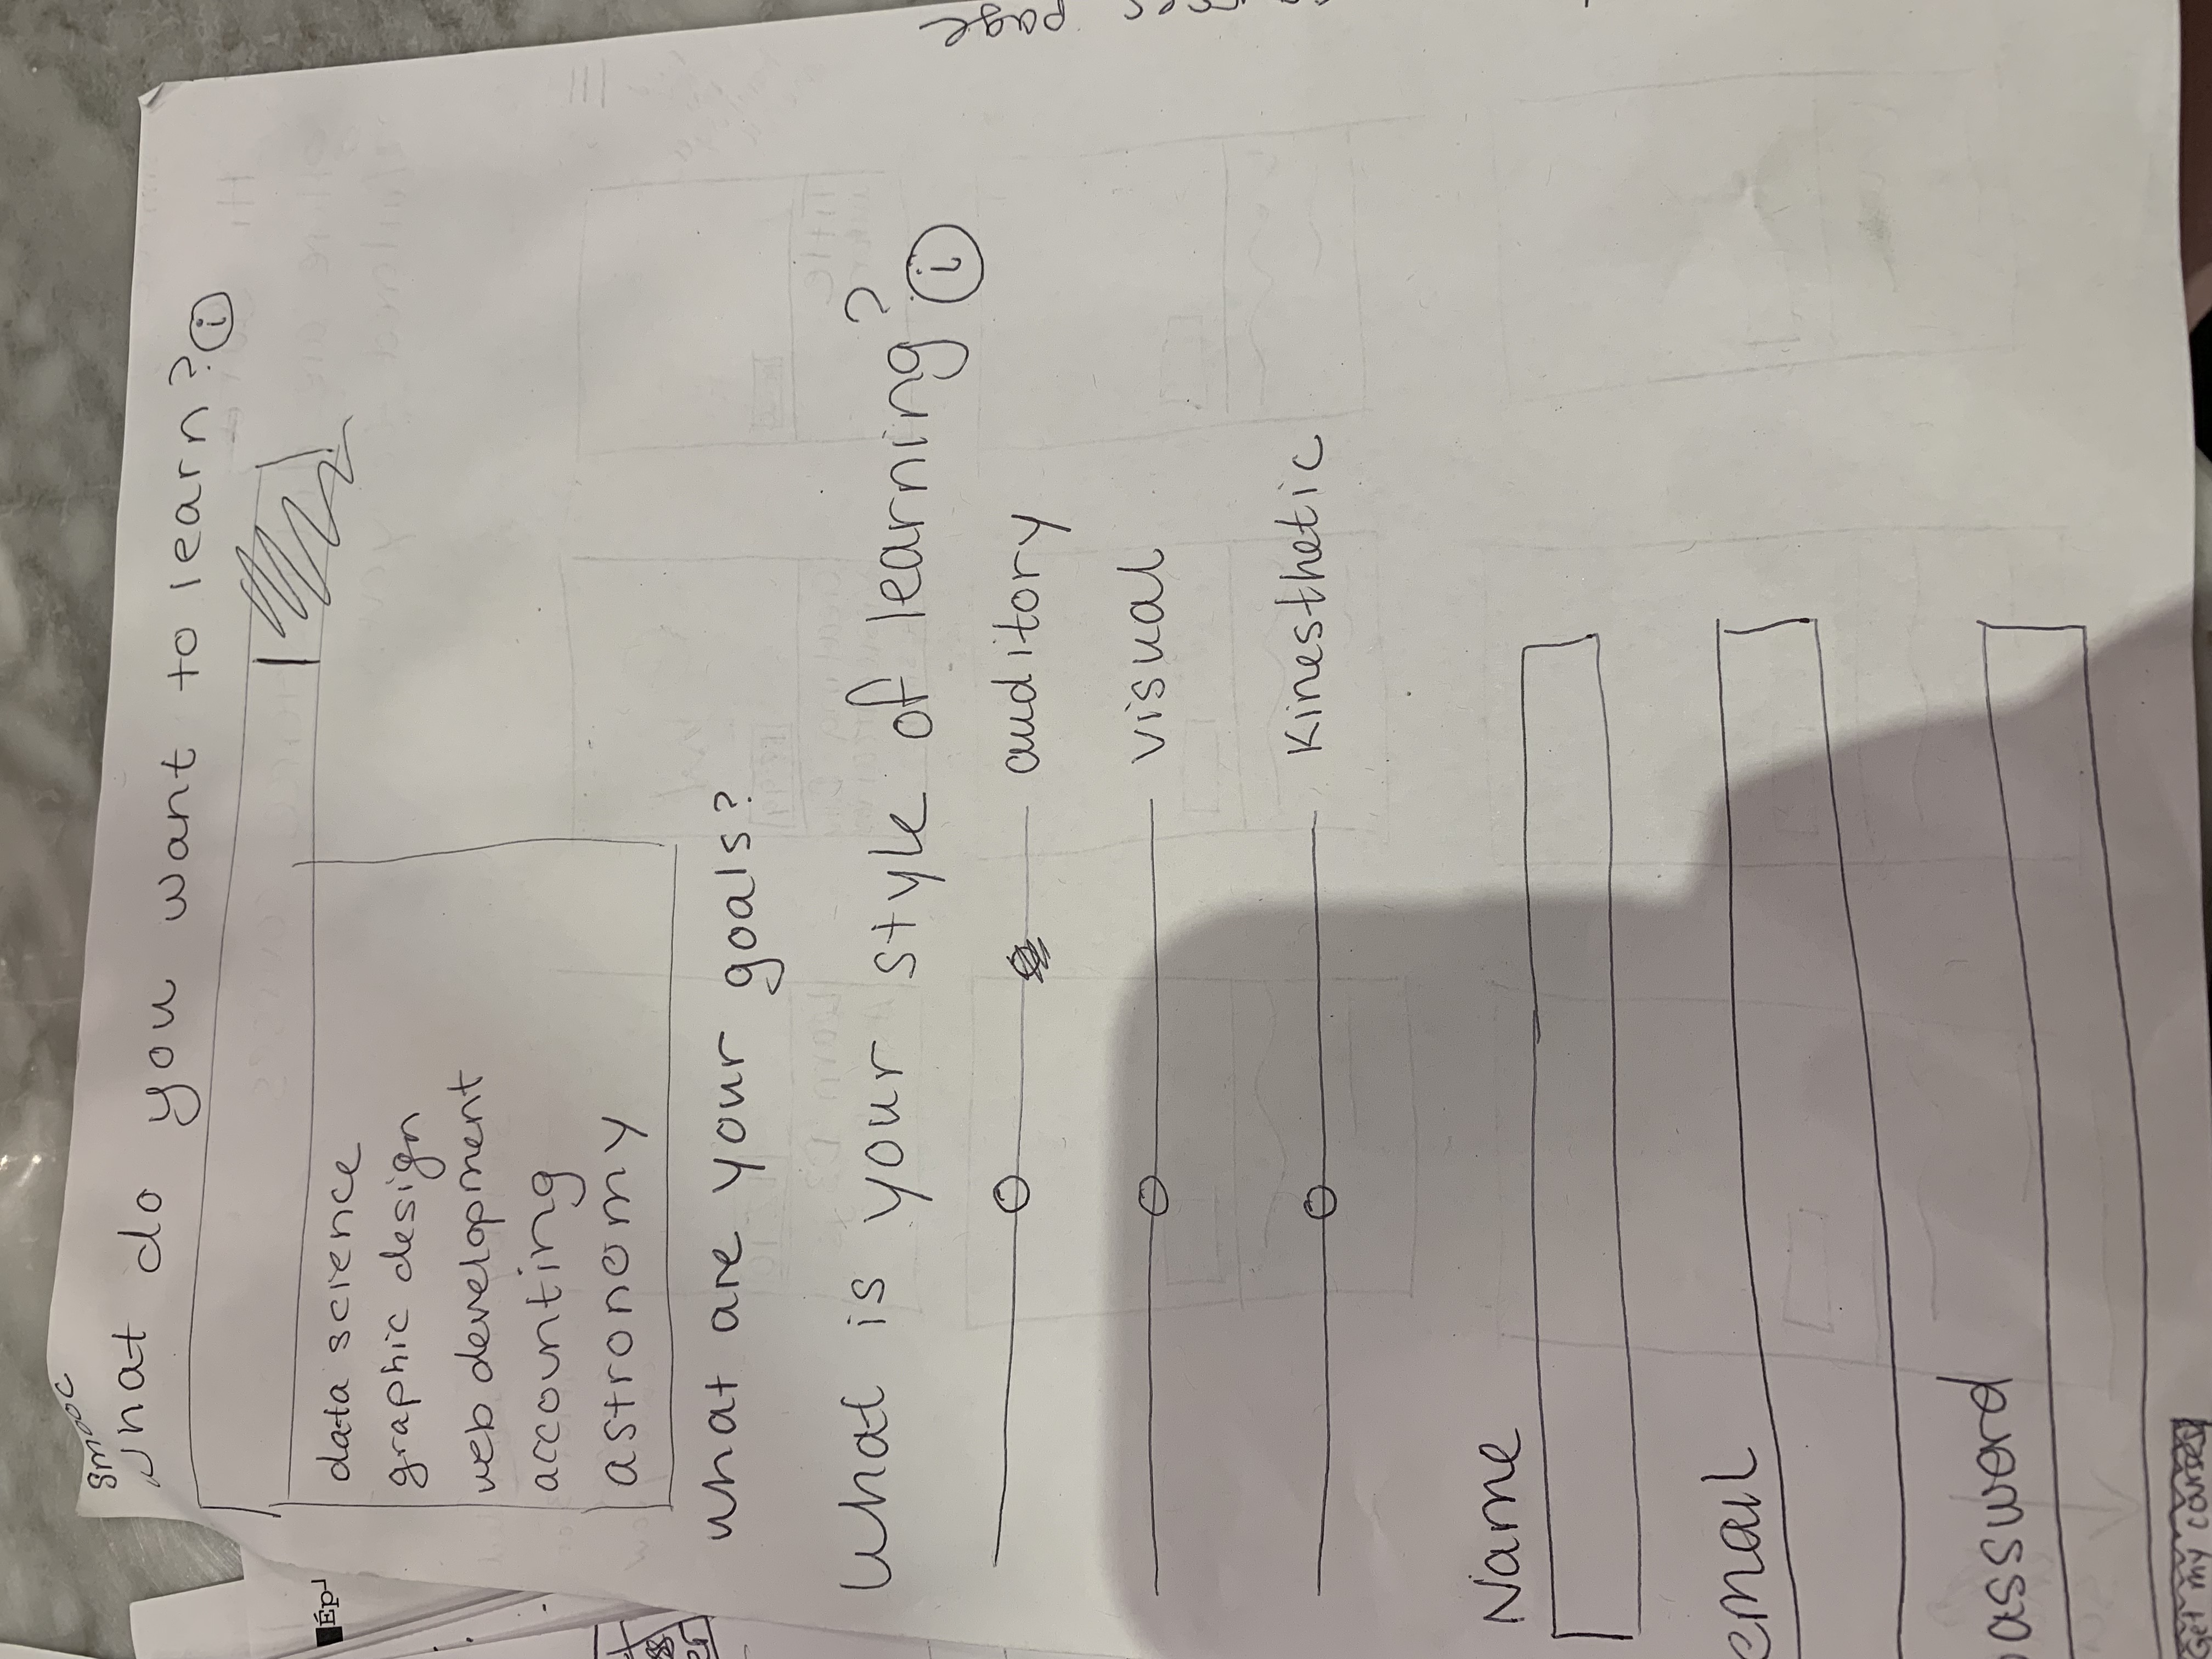 smooc
What do you want to learn? i
data science
graphic design
web development
accounting
astronomy
what are your goals?
What is your style of learning? i
auditory
visual
Kinesthetic
Name
email
password
Get my courses
page
Ép